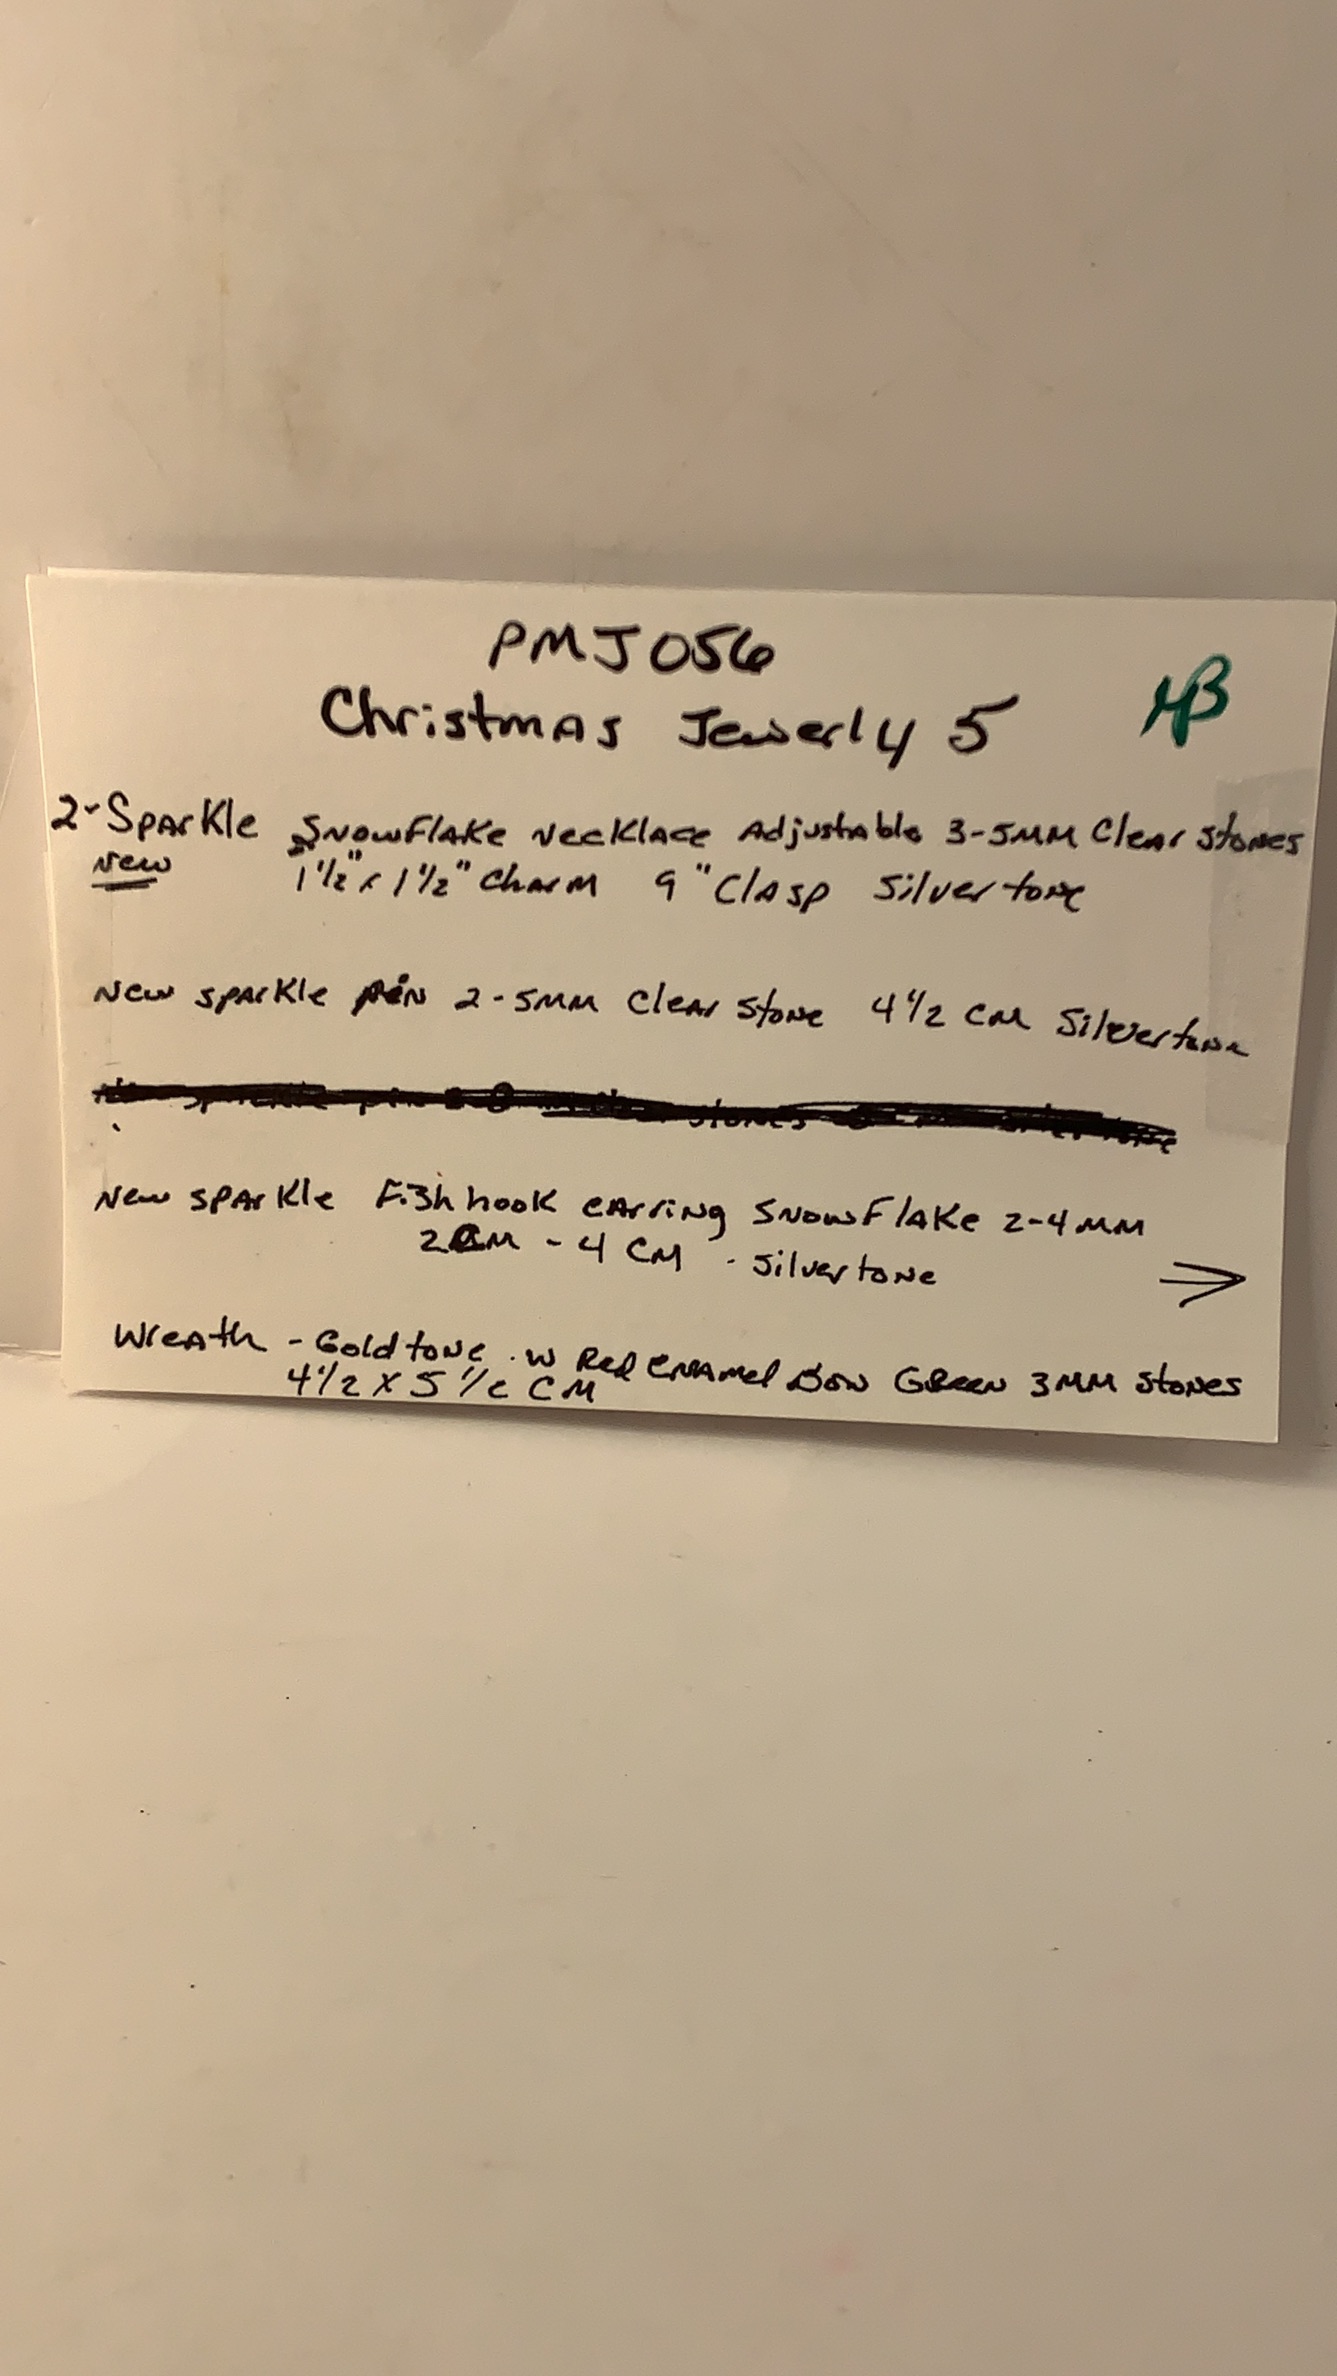 PMJ056
Christmas Jewerly 5
HB
2-Sparkle Snowflake Necklace Adjustable 3-5MM Clear Stones
New 1 1/2" x 1 1/2" Charm 9" Clasp Silvertone
New Sparkle Pin 2-5MM Clear Stone 4 1/2 CM Silvertone
New Sparkle Fishhook earring Snowflake 2-4MM
2CM - 4 CM - Silvertone
Wreath - Goldtone . W Red Enamel Bow Green 3MM Stones
4 1/2 X 5 1/2 CM